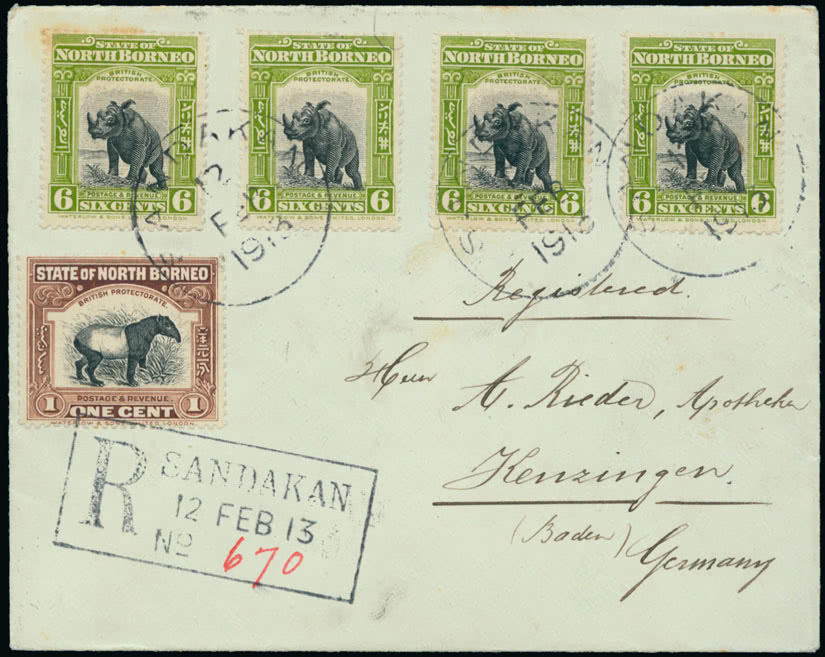 STATE OF
NORTH BORNEO
BRITISH
PROTECTORATE.
6 6
POSTAGE & REVENUE
SIX CENTS
WATERLOW & SONS LIMITED, LONDON.
STATE OF
NORTH BORNEO
BRITISH
PROTECTORATE.
6 6
POSTAGE & REVENUE
SIX CENTS
WATERLOW & SONS LIMITED, LONDON.
STATE OF
NORTH BORNEO
BRITISH
PROTECTORATE.
6 6
POSTAGE & REVENUE
SIX CENTS
WATERLOW & SONS LIMITED, LONDON.
STATE OF
NORTH BORNEO
BRITISH
PROTECTORATE.
6 6
POSTAGE & REVENUE
SIX CENTS
WATERLOW & SONS LIMITED, LONDON.
SANDAKAN
12
FEB
1913
SANDAKAN
FEB
1913
SANDAKAN
1913
STATE OF NORTH BORNEO
BRITISH PROTECTORATE.
1 1
POSTAGE & REVENUE.
ONE CENT
WATERLOW & SONS LIMITED, LONDON.
Registered.
Herrn A. Rieder, Apotheker
Kenzingen.
(Baden)
Germany
R SANDAKAN
12 FEB 13
No 670